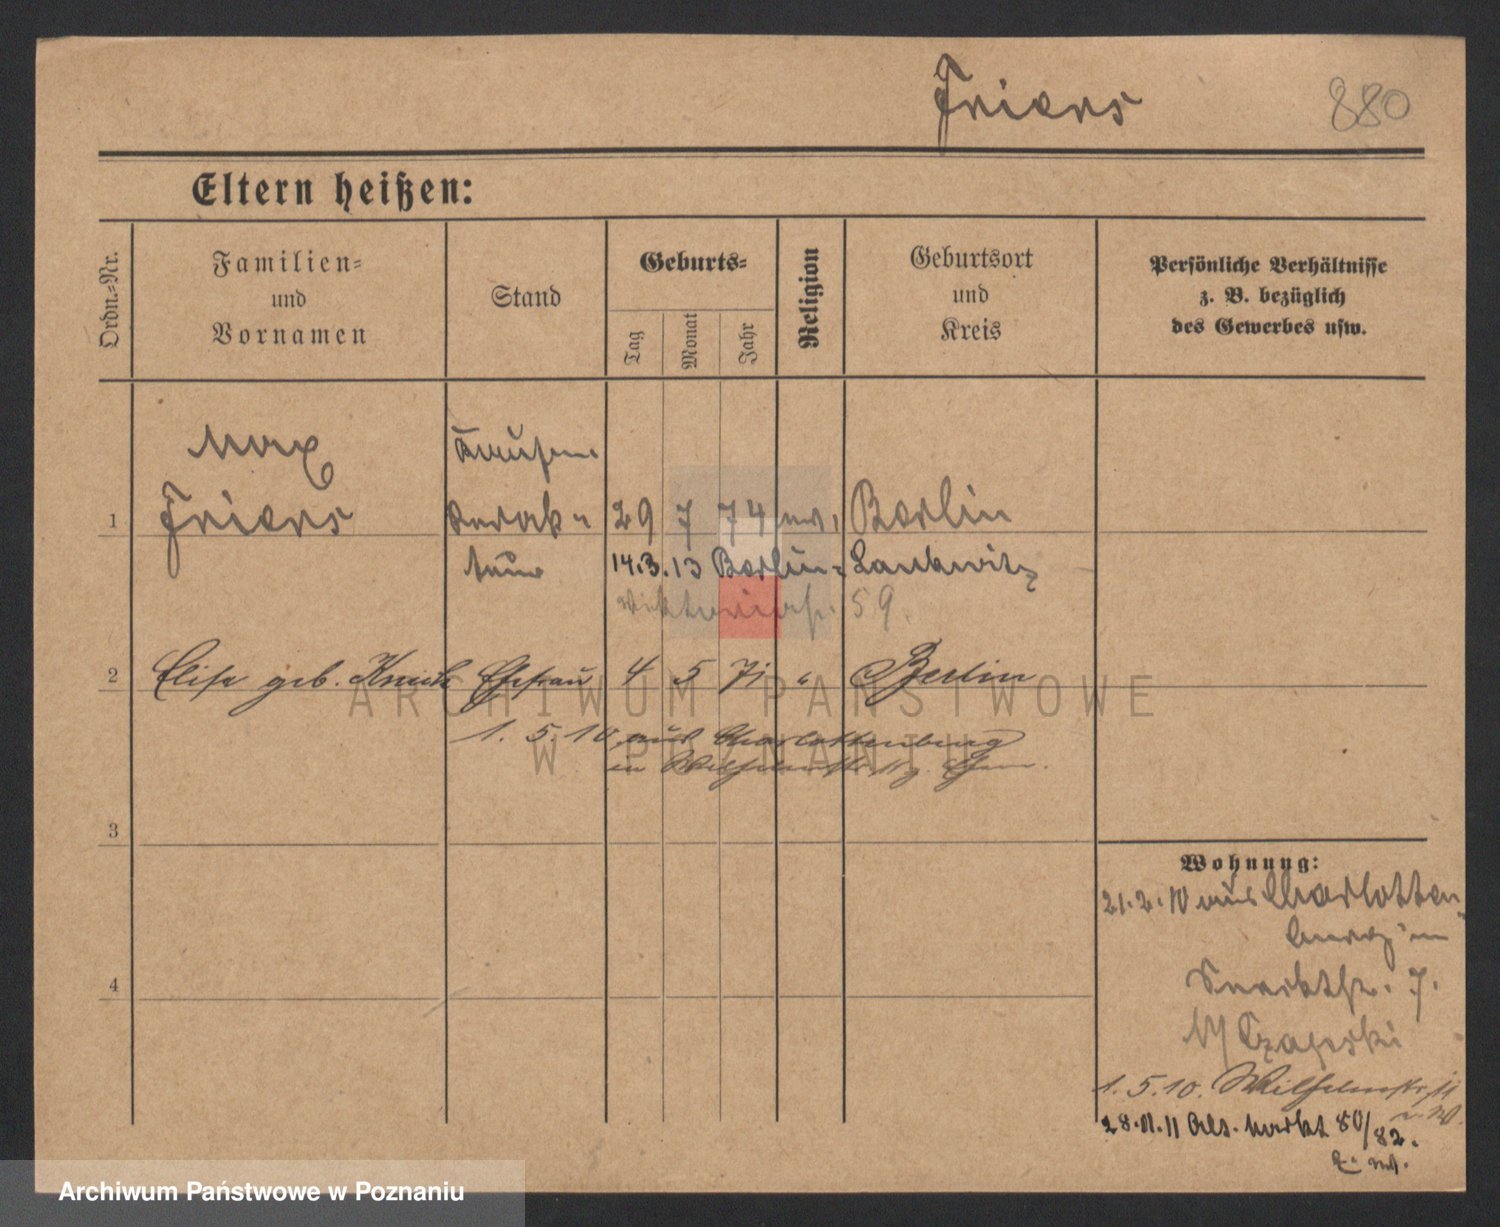 Friers
880
Eltern heißen:
Ordn.-Nr.
Familien-
und
Vornamen
Stand
Geburts-
Tag
Monat
Jahr
Religion
Geburtsort
und
Kreis
Persönliche Verhältnisse
z. B. bezüglich
des Gewerbes usw.
Max
1 Friers 29 7 74 ev. Berlin
14.3.13 Berlin- Lankwitz
Viktoriastr. 59.
2 Elise geb. Ehefrau 4 5 71 " Berlin
1. 5. 10 aus Charlottenburg
in Wilhelmstr.
3
4
Wohnung:
21.2.10 aus Charlotten-
burg in
7.
Czapski
1.5.10. Wilhelmstr. 11
28.11.11 Alt. Markt 80/82.
ARCHIWUM PAŃSTWOWE
W POZNANIU
Archiwum Państwowe w Poznaniu